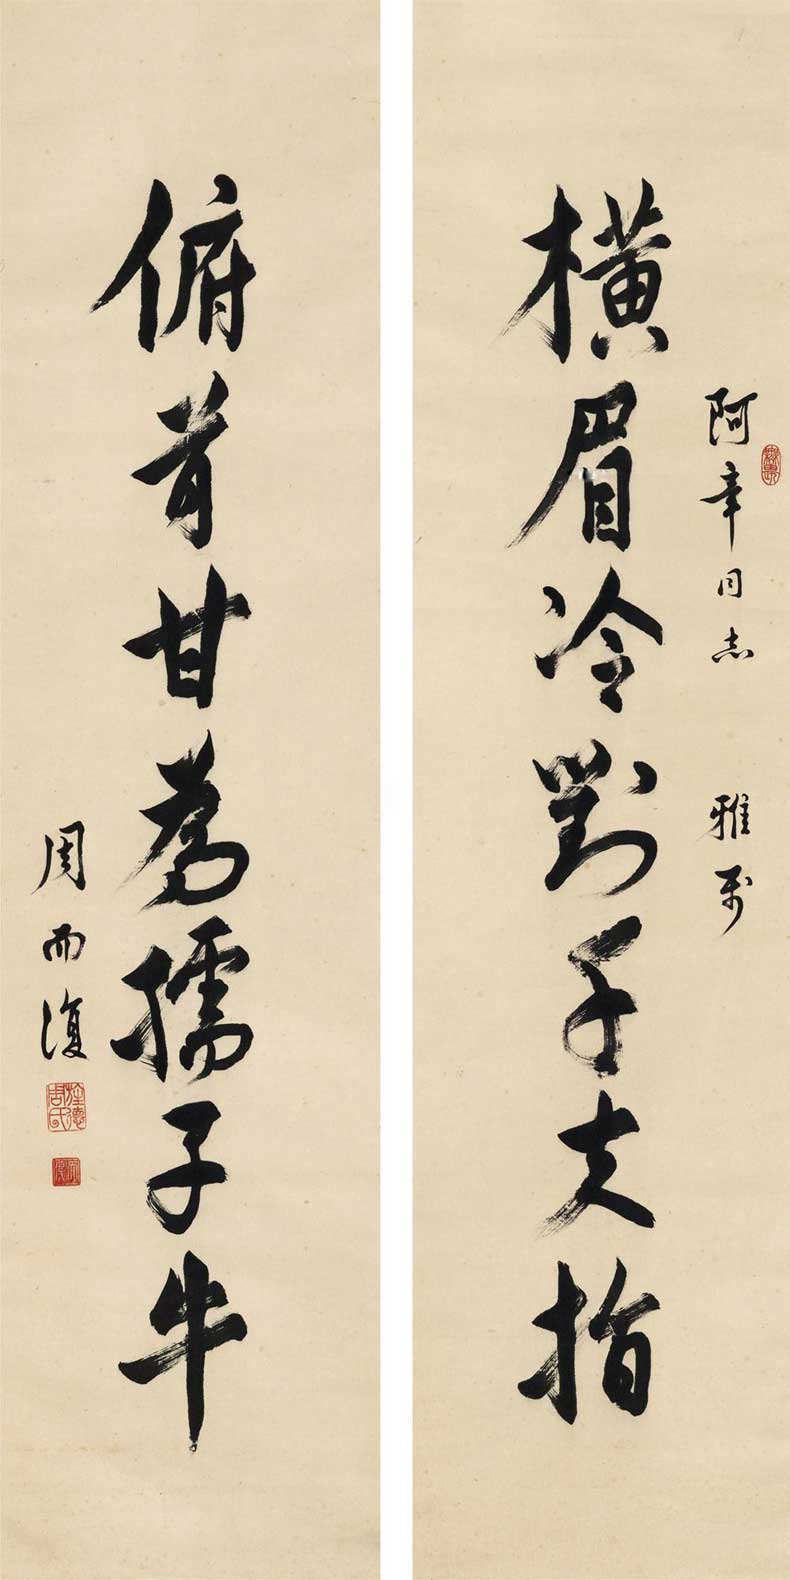 阿辛同志 雅玩
橫眉冷對千夫指
俯首甘為孺子牛
周而復